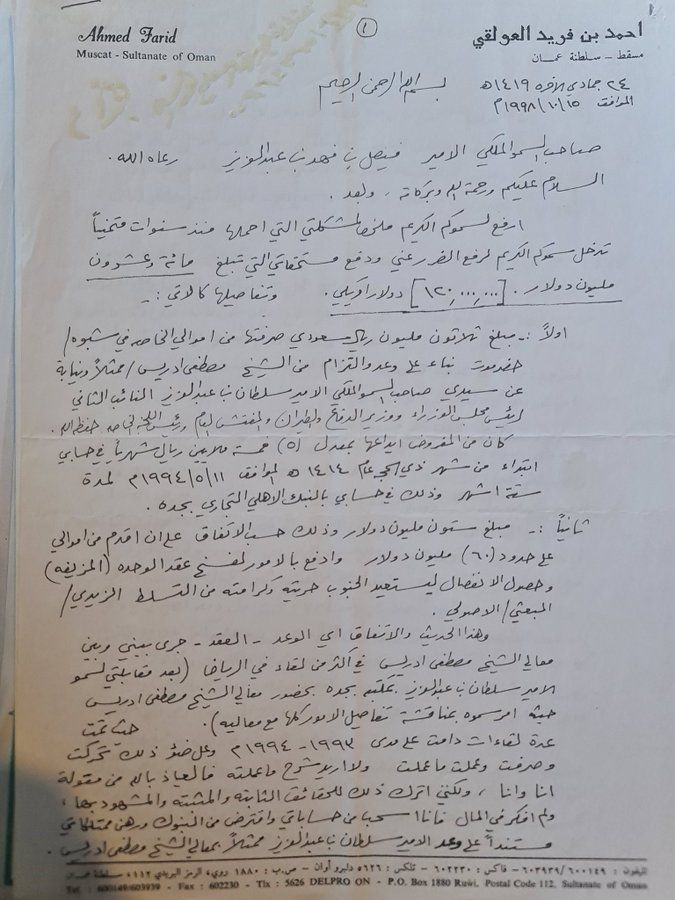 ١
Ahmed Farid
Muscat - Sultanate of Oman
١
احمد بن فريد العولقي
مسقط - سلطنة عمان
٢٤ جمادي الآخره ١٤١٩ه
الموافق ١٥/١٠/١٩٩٨م
بسم الله الرحمن الرحيم
صاحب السمو الملكي الامير فيصل بن فهد بن عبدالعزيز رعاه الله.
السلام عليكم ورحمة الله وبركاته، وبعد.
ارفع لسموكم الكريم ملخص المشكلتي التي احملها منذ سنوات متمنياً
تدخل سموكم الكريم لرفع الضرر عني ودفع مستحقاتي التي تبلغ مائة وعشرون
مليون دولار. [١٢٠,٠٠٠,٠٠٠] دولار امريكي. وتفاصيلها كالاتي :-
اولاً :- مبلغ ثلاثون مليون ريال سعودي صرفتها من اموالي الخاصه في شبوه/
حضرموت بناء على وعد والتزام من الشيخ مصطفى ادريس/ ممثلاً ونيابة
عن سيدي صاحب السمو الملكي الامير سلطان بن عبدالعزيز النائب الثاني
لرئيس مجلس الوزراء ووزير الدفاع والطيران والمفتش العام ورئيس اللجنة الخاصه حفظه الله.
كان من المفروض ايداعها بمعدل (٥) خمسة ملايين ريال شهرياً في حسابي
ابتداء من شهر ذي الحجه عام ١٤١٤ ه الموافق ١١/٥/١٩٩٤م لمدة
ستة اشهر وذلك في حسابي بالبنك الاهلي التجاري بجده.
ثانياً :- مبلغ ستون مليون دولار وذلك حسب الاتفاق على ان اقدم من اموالي
على حدود (٦٠) مليون دولار وادفع بالامور لفسخ عقد الوحده (المزيفه)
وحصول الانفصال ليستعيد الجنوب حريته وكرامته من التسلط الزيدي/
البعثي/ الاصولي.
وهذا الحديث والاتفاق اي الوعد - العقد - جرى بيني وبين
معالي الشيخ مصطفى ادريس في اكثر من لقاء في الرياض (بعد مقابلتي لسمو
الامير سلطان بن عبدالعزيز بمكتبه بجده بحضور معالي الشيخ مصطفى ادريس
حيث امر سموه بمناقشة تفاصيل الامور كلها مع معاليه). حيث تمت
عدة لقاءات دامت على مدى ١٩٩٣ - ١٩٩٤م وعلى ضوء ذلك تحركت
وصرفت وعملت ما عملت ولا اريد شرح ما عملته فالعياذ بالله من مقولة
انا وانا، ولكني اترك ذلك للحقائق الثابته والمثبته والمشهود بها،
ولم افكر في المال فانا اسحب من حساباتي واقترض من البنوك ورهن ممتلكاتي
مستنداً على وعد الامير سلطان بن عبدالعزيز ممثلاً بمعالي الشيخ مصطفى ادريس.
تليفون : ٦٠٠١٤٩/٦٠٣٩٣٩ - فاكس : ٦٠٢٢٣٠ - تلكس : ٥٦٢٦ دلبرو أوان - ص.ب : ١٨٨٠ روي، الرمز البريدي ١١٢، سلطنة عمان
Tel : 600149/603939 - Fax : 602230 - Tlx : 5626 DELPRO ON - P.O. Box 1880 Ruwi, Postal Code 112, Sultanate of Oman